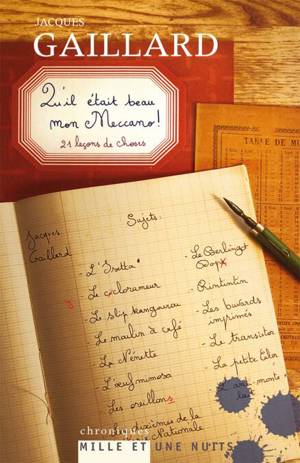 JACQUES
GAILLARD
Qu'il était beau
mon Meccano!
21 leçons de choses
TABLE DE MU
Jacques
Gaillard
Sujets:
- L'"Isetta"
- Le colorameur
- Le slip kangourou
- Le moulin à café
- La Nénette
- L'œuf mimosa
- Les oreillons
- Le Berlingot
Dop
- Rintintin
- Les buvards
imprimés
- Le transistor
- La petite
- L'anti-monte
lait
chroniques
MILLE ET UNE NUITS